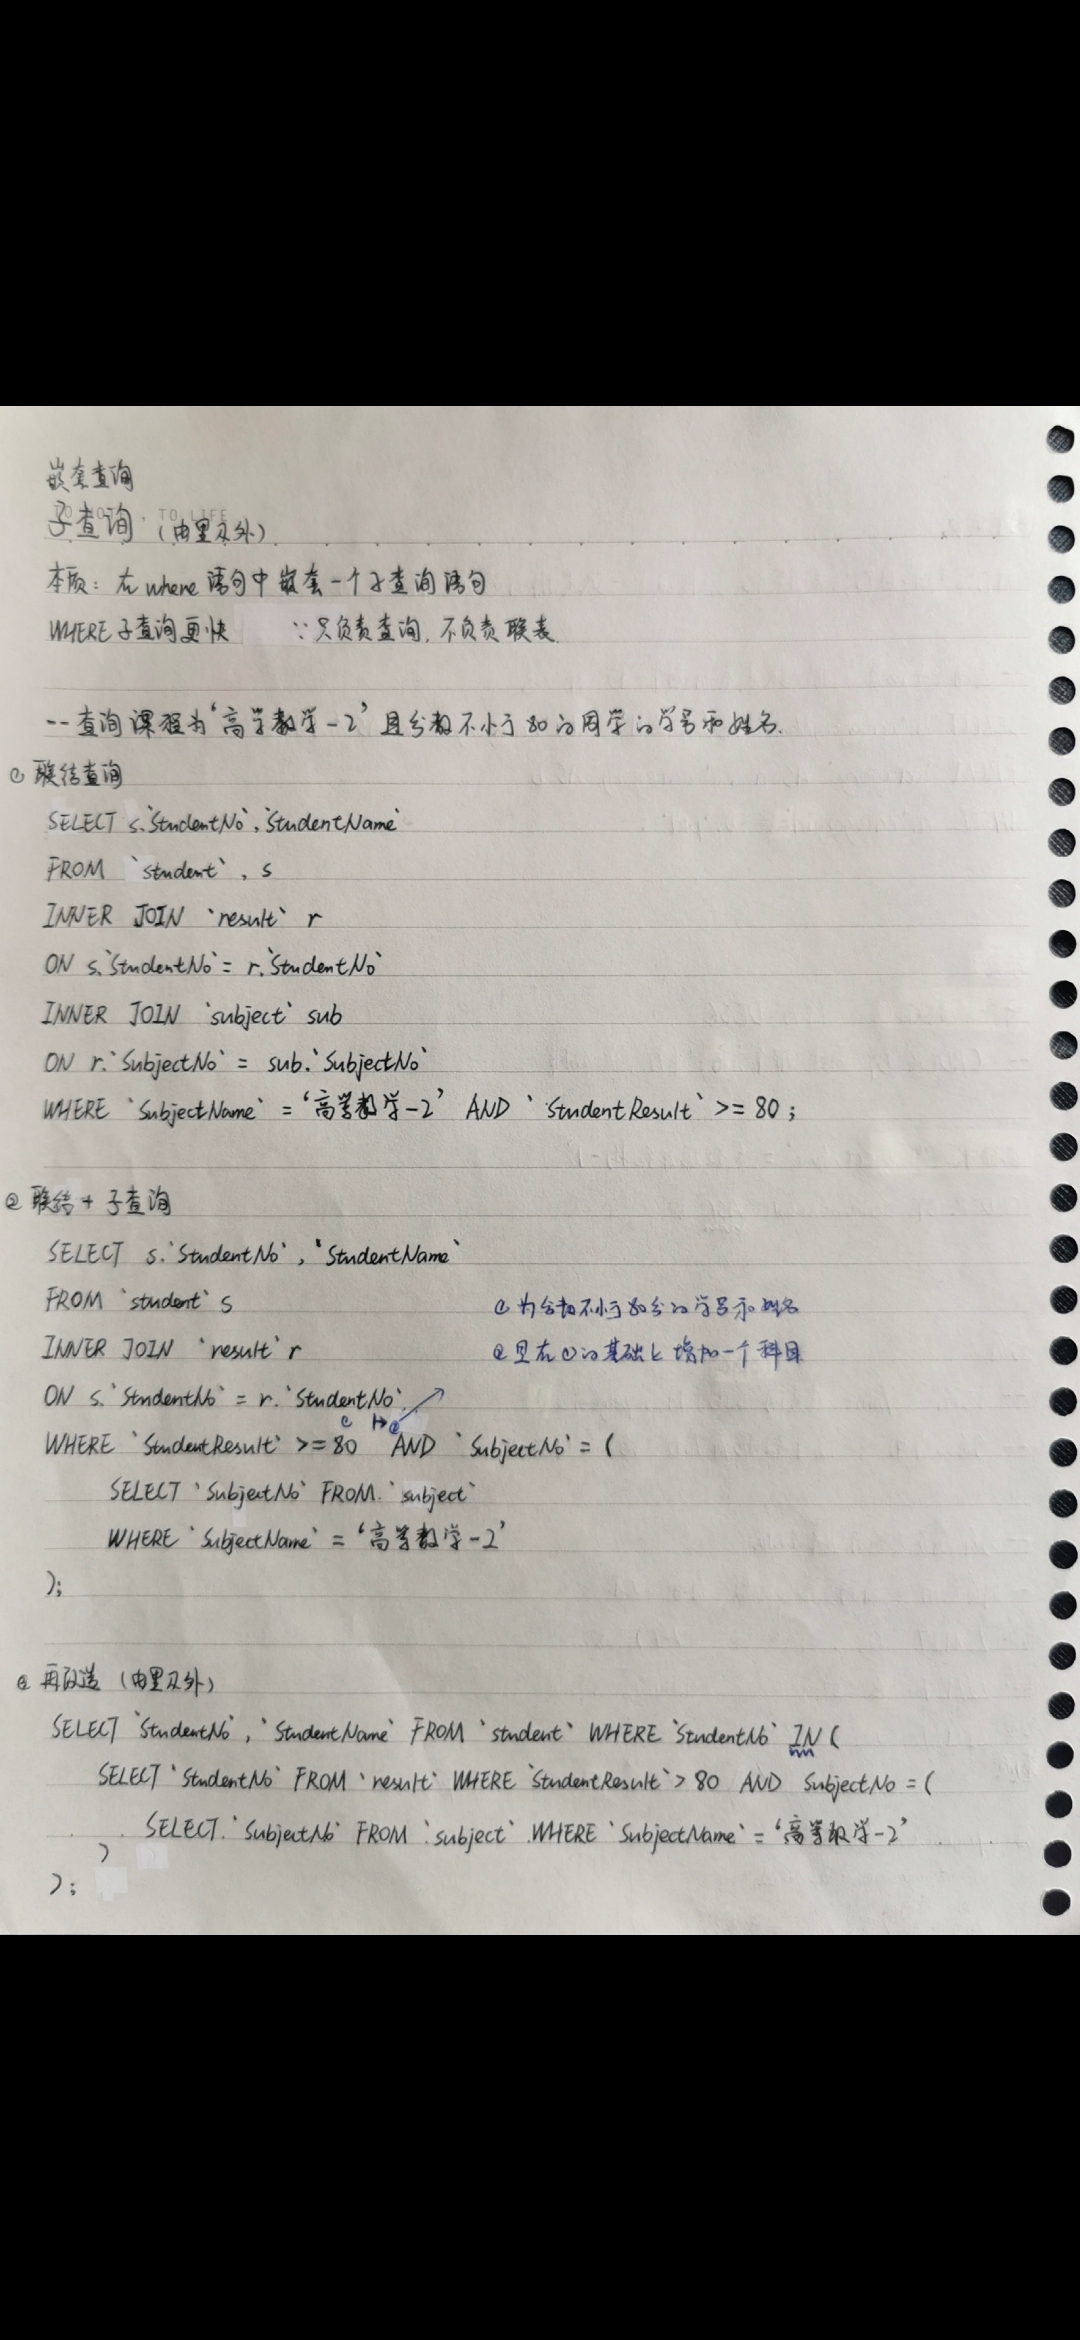 嵌套查询
子查询（由里及外）
本质：在where语句中嵌套一个子查询语句
WHERE子查询更快 ∵只负责查询，不负责联表
--查询课程为‘高等数学-2’且分数不小于80的同学的学号和姓名.
① 联结查询
SELECT s.`StudentNo`,`StudentName`
FROM `student`, s
INNER JOIN `result` r
ON s.`StudentNo` = r.`StudentNo`
INNER JOIN `subject` sub
ON r.`SubjectNo` = sub.`SubjectNo`
WHERE `SubjectName` = ‘高等数学-2’ AND `StudentResult` >= 80;
② 联结+子查询
SELECT s.`StudentNo`, `StudentName`
FROM `student` s
① 为分数不小于80分的学号和姓名
INNER JOIN `result` r
② 是在①的基础上增加一个科目
ON s.`StudentNo` = r.`StudentNo`
① ②
WHERE `StudentResult` >= 80 AND `SubjectNo` = (
SELECT `SubjectNo` FROM `subject`
WHERE `SubjectName` = ‘高等数学-2’
);
再改造（由里及外）
SELECT `StudentNo`, `StudentName` FROM `student` WHERE `StudentNo` IN (
SELECT `StudentNo` FROM `result` WHERE `StudentResult` > 80 AND SubjectNo = (
SELECT `SubjectNo` FROM `subject` WHERE `SubjectName` = ‘高等数学-2’
)
);